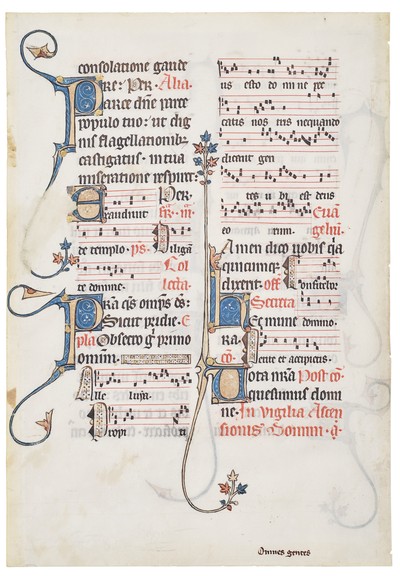 consolatione gaude
re: Per. Alia.
Parce dñe parce
populo tuo: ut dig
nis flagellationib;
castigatus. in tua
miseratione respiret:
Per.
Exaudiuit
de templo. ps. Diligã
te domine. Col
lecta.
Sicut pridie. E
pla Obsecro gͥ primo
omiũm.
Alle luya.
Propi ti
us esto do mi ne pec
catis nos tris nequando
dicent gen
tes u bi est deus
eo rum. Euã
gelíu.
Amen dico uobis qa
quicumqꝫ
dixerit. off Confitebor
Secreta
domino.
co
Petite et accipietis.
Uota nr̃a Post cõ
quesumus domi
ne. In vigilia Ascen
sionis Domini.
Omnes gentes